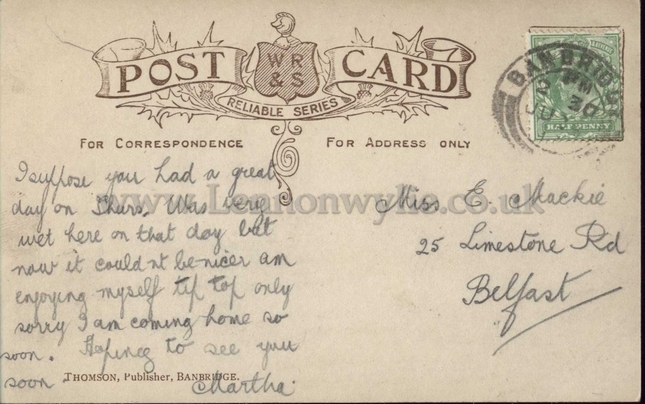 POST CARD
WR
& S
RELIABLE SERIES
FOR CORRESPONDENCE
FOR ADDRESS ONLY
BANBRIDGE
PM
30
HALF PENNY
www.Lennonwylie.co.uk
I suppose you had a great
day on Thurs. Was very
wet here on that day but
now it couldnt be nicer am
enjoying myself tip top only
sorry I am coming home so
soon. Hoping to see you
soon
Martha.
Miss E Mackie
25 Limestone Rd
Belfast
THOMSON, Publisher, BANBRIDGE.